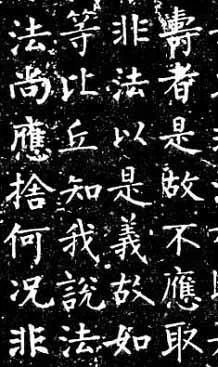 壽者是故不應取
非法以是義故如
等比丘知我說
法尚應捨何況非法